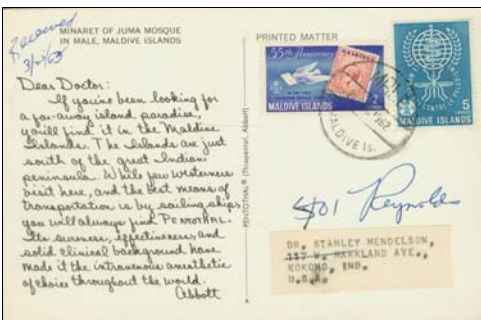 Received
3/5/63
MINARET OF JUMA MOSQUE
IN MALE, MALDIVE ISLANDS
Dear Doctor:
If you've been looking for
a far-away island paradise,
you'll find it in the Maldive
Islands. The Islands are just
south of the great Indian
peninsula. While few westerners
visit here, and the best means of
transportation is by sailing ships,
you will always find PENTOTHAL.
Its sureness, effectiveness, and
solid clinical background have
made it the intravenous anesthetic
of choice throughout the world.
Abbott
PENTOTHAL® (Thiopental, Abbott)
PRINTED MATTER
55th Anniversary
MALDIVES
2
MALDIVE ISLANDS
5
MALDIVE ISLANDS
1962
MALDIVE IS.
401 Reynolds
DR. STANLEY MENDELSON,
117 W. MARKLAND AVE.,
KOKOMO, IND.
U.S.A.